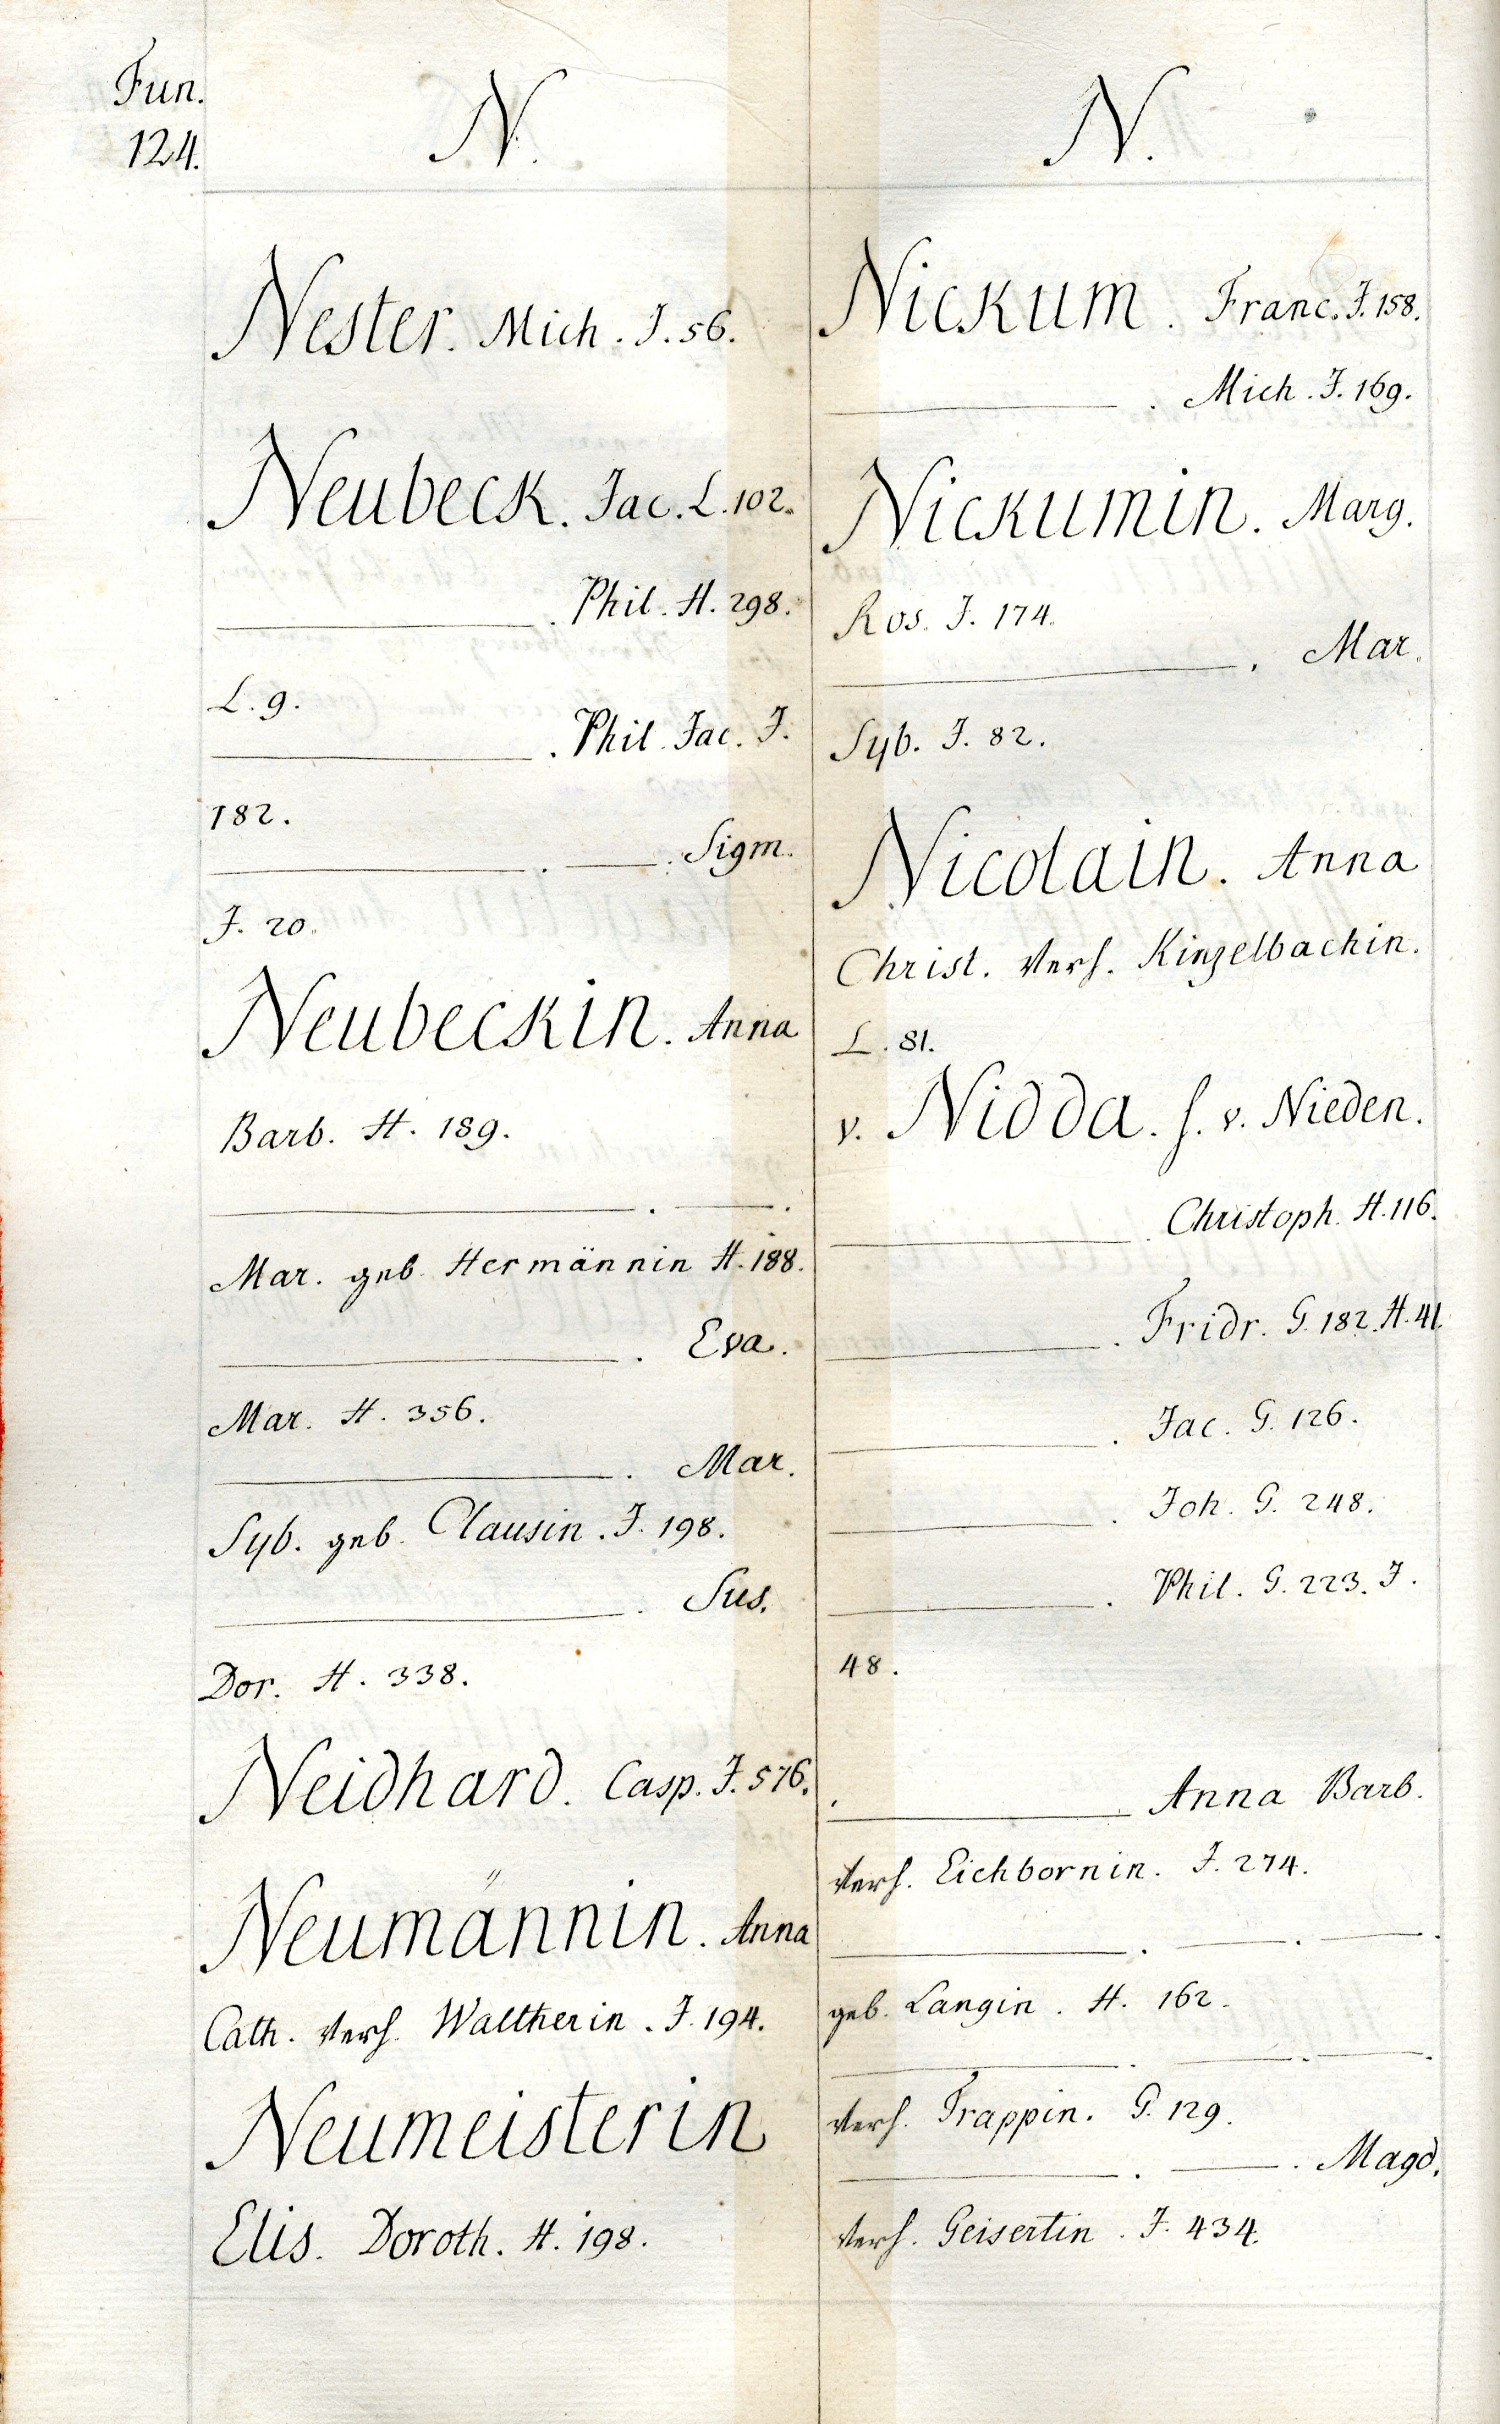 Fun.
124.
N.
Nester. Mich. J. 56.
Neubeck. Jac. L. 102.
. Phil. H. 298.
L. 9.
. Phil. Jac. J.
182.
. . Sigm.
J. 20.
Neubeckin. Anna
Barb. H. 189.
. .
Mar. geb. Hermännin H. 188.
. Eva.
Mar. H. 356.
. Mar.
Syb. geb. Clausin. J. 198.
. Sus.
Dor. H. 338.
Neidhard. Casp. J. 576.
Neumännin. Anna
Cath. verh. Waltherin. J. 194.
Neumeisterin
Elis. Doroth. H. 198.
N.
Nickum. Franc. J. 158.
. Mich. J. 169.
Nickumin. Marg.
Ros. J. 174.
. Mar.
Syb. J. 82.
Nicolain. Anna
Christ. verh. Kinzelbachin.
L. 81.
v. Nidda. s. v. Nieden.
. Christoph. H. 116.
. Fridr. G. 182. H. 41.
. Jac. G. 126.
. Joh. G. 248.
. Phil. G. 223. J.
48.
. Anna Barb.
verh. Eichbornin. J. 274.
. . .
geb. Langin. H. 162.
. . .
verh. Trappin. G. 129.
. . Magd.
verh. Geisertin. J. 434.